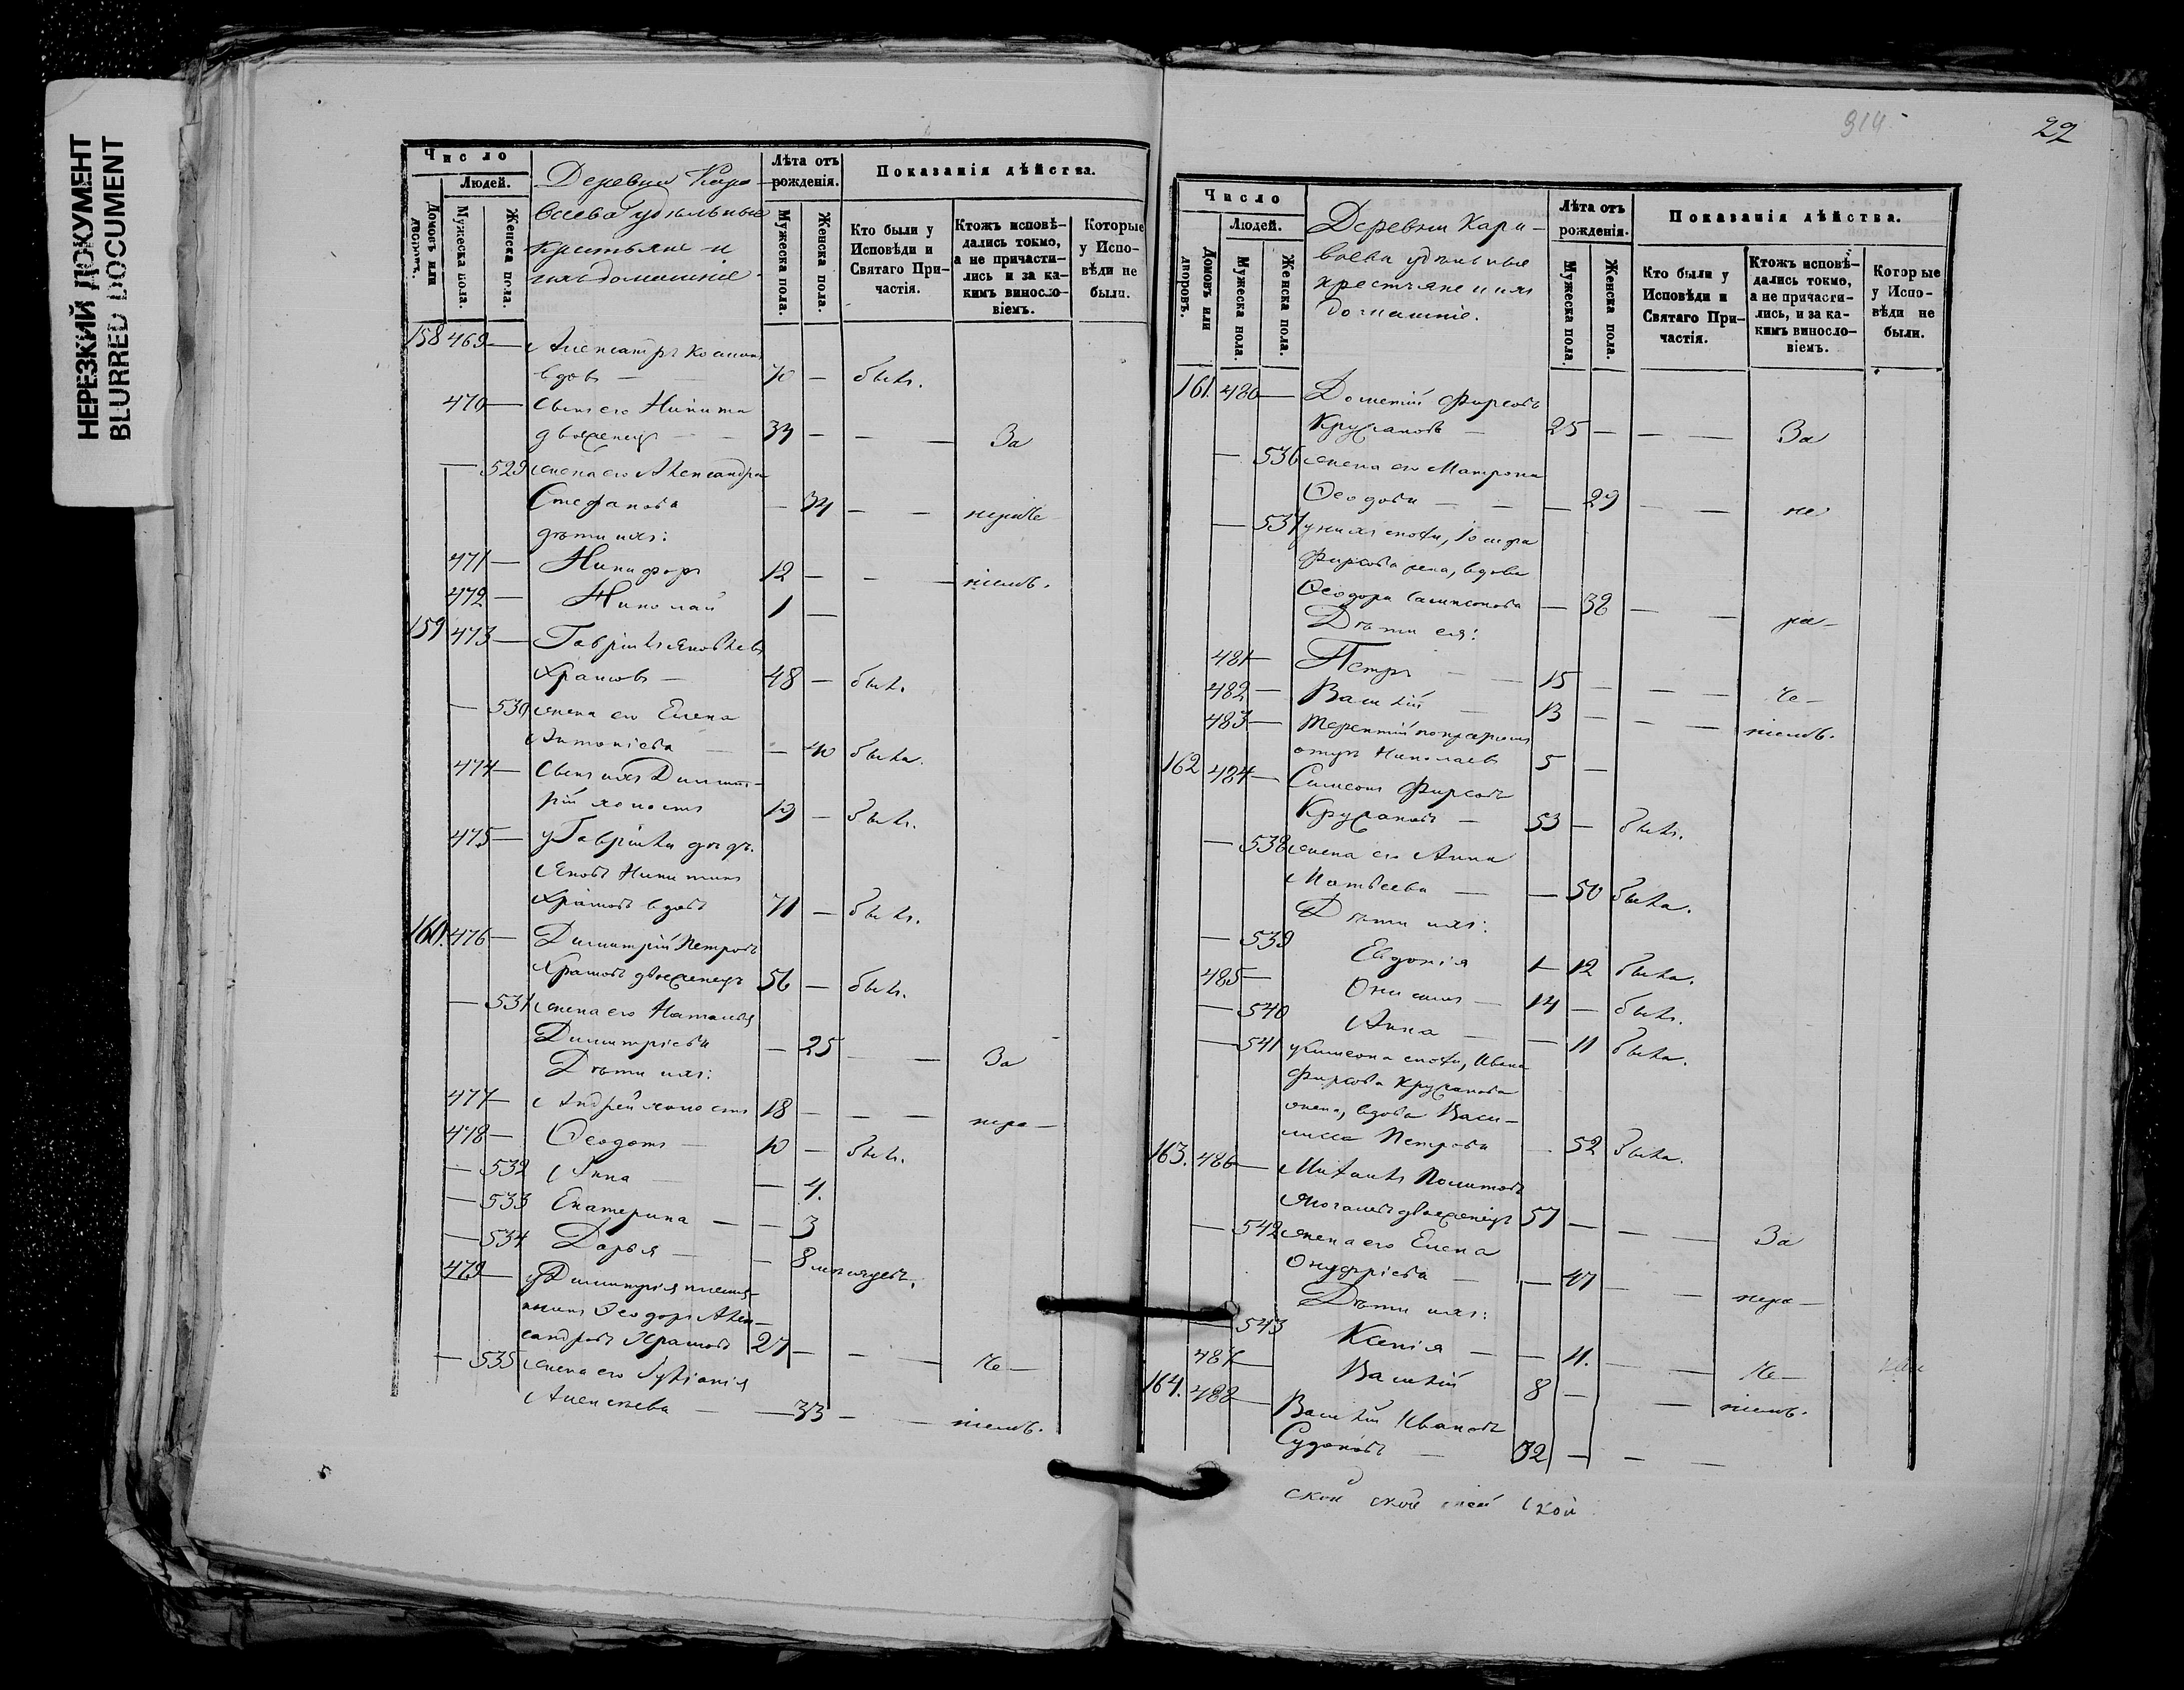 НЕРЕЗКИЙ ДОКУМЕНТ
BLURRED DOCUMENT
Число
Людей.
Домовъ или дворовъ.
Мужеска пола.
Женска пола.
Деревни Кара-
воева удѣльные
крестьяне и
ихъ домашніе
Лѣта отъ рожденія.
Мужеска пола.
Женска пола.
Показанія дѣйства.
Кто были у Исповѣди и Святаго Причастія.
Ктожъ исповѣдались токмо, а не причастились и за какимъ винословіемъ.
Которые у Исповѣди не были.
158 469 — Александръ Косминъ
вдовъ — 70 — былъ.
470 — Сынъ его Никита
двоженецъ — — 33 — — — За
— 529 жена его Александра
Стефанова — 34 — — нераче-
дѣти ихъ:
471 — Никифоръ 12 — — — ніемъ.
472 — Николай 1 —
159 473 — Гавріилъ Яковлевъ
Храмовъ — 48 — былъ.
— 530 жена его Елена
Антоніева — — 40 была.
474 — Сынъ ихъ Димит-
рій холостъ 19 — былъ.
475 — у Гавріила дядя
Яковъ Никитинъ
Храмовъ вдовъ 71 — былъ.
160. 476 — Димитрій Петровъ
Храмовъ двоженецъ 56 — былъ.
— 531 жена его Наталья
Димитріева — 25 — — За
Дѣти ихъ:
477 — Андрей холостъ 18 — — — нера-
478 — Ѳеодотъ — 10 — былъ.
— 532 Анна — — 4.
— 533 Екатерина — — 3
— 534 Дарья — — 8 мѣсяцевъ.
479 — у Димитрія племян-
никъ Ѳеодоръ Алек-
сандровъ Храмовъ 27 — — — че-
— 535 жена его
Алексѣева — — 33 — — ніемъ.
314.
22
Число
Людей.
Домовъ или дворовъ.
Мужеска пола.
Женска пола.
Деревни Кара-
воева удѣльные
крестьяне и ихъ
домашніе.
Лѣта отъ рожденія.
Мужеска пола.
Женска пола.
Показанія дѣйства.
Кто были у Исповѣди и Святаго Причастія.
Ктожъ исповѣдались токмо, а не причастились, и за какимъ винословіемъ.
Которые у Исповѣди не были.
161. 480 — Дометій Фирсовъ
Кружановъ — 25 — — — За
— 536 жена его Матрона
Ѳеодови — — — 29 — — не
— 537 у нихъ сноха, Іосифа
Фирсова жена, вдова
Ѳеодора Самсонова — 38 — — ра-
Дѣти ея:
481 — Петръ — — 15 — — — че-
482 — Василій — 13 — — — ніемъ.
483 — Терентій
отцу Николаевъ 5 —
162 484 — Симеонъ Фирсовъ
Кружановъ — 53 — былъ.
— 538 жена его Анна
Матвеева — — 50 была.
Дѣти ихъ:
— 539 Евдокія — 12 была.
485 — Онисимъ — 14 — былъ.
— 540 Анна — — 11 была.
— 541 у Симеона сноха, Ивана
Фирсова Кружанова
жена, вдова Васи-
лисса Петрова 52 была.
163. 486 — Михаилъ
двоженецъ 57 — — — За
— 542 жена его Елена
Онуфріева — — 47 — — нера-
Дѣти ихъ:
543 Ксенія — — 11. — — че-
487 — Василій 8 — — ніемъ.
164. 488 — Василій Ивановъ
Судаковъ — 32 — — —
ской ской ской